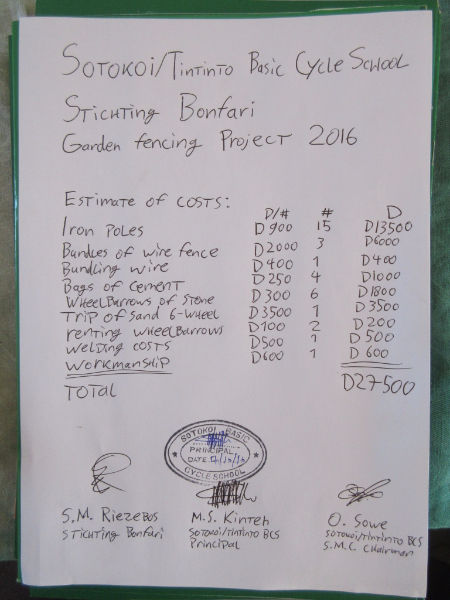 Sotokoi/Tintinto Basic Cycle School
Stichting Bonfari
Garden fencing Project 2016
Estimate of costs:
D/# # D
Iron Poles D900 15 D13500
Bundles of wire fence D2000 3 D6000
Bundling wire D400 1 D400
Bags of cement D250 4 D1000
Wheelbarrows of stone D300 6 D1800
Trip of sand 6-wheel D3500 1 D3500
renting wheelbarrows D100 2 D200
welding costs D500 1 D500
workmanship D600 1 D600
Total D27500
SOTOKOI BASIC
PRINCIPAL
DATE
CYCLE SCHOOL
S.M. Riezebos
Stichting Bonfari
M.S. Kinteh
Sotokoi/Tintinto BCS
Principal
O. Sowe
Sotokoi/Tintinto BCS
S.M.C Chairman